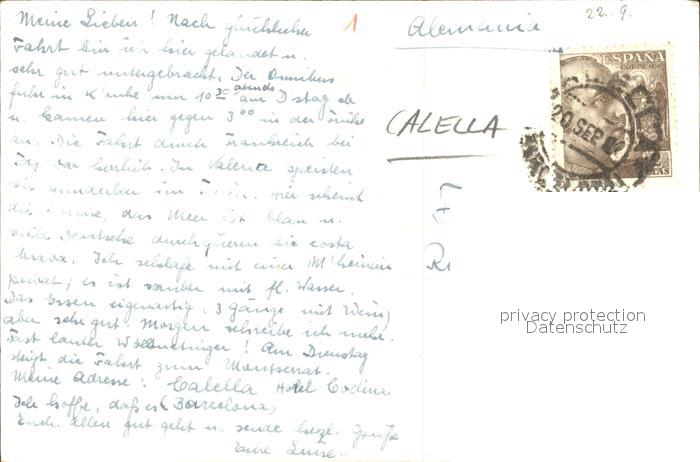 Meine Lieben! Nach glücklicher
Fahrt bin ich hier gelandet u.
sehr gut untergebracht. Der Omnibus
fuhr in K'ruhe um 10 30 abends am Dstag ab
u. kamen hier gegen 3 00 in der Frühe
an. Die Fahrt durch Frankreich bei
Tag war herrlich. In Valence speisten
wir wunderbar im Hier scheint
die Sonne, das Meer ist blau u.
viele Deutsche durchqueren die costa
brava. Ich schlafe mit einer M'heimerin
privat; es ist sauber mit fl. Wasser.
Das Essen eigenartig, 3 Gänge mit Wein,
aber sehr gut. Morgen schreibe ich mehr.
Fast lauter ! Am Dienstag
steigt die Fahrt zum Montserrat.
Meine Adresse: Calella Hotel Codina
Ich hoffe, daß es (Barcelona)
Euch allen gut geht u. sende herzl. Grüße
Eure Luise.
1
Alemania
22.9.
CALELLA
ESPAÑA
CORREOS
PTAS
20 SEP
privacy protection
Datenschutz